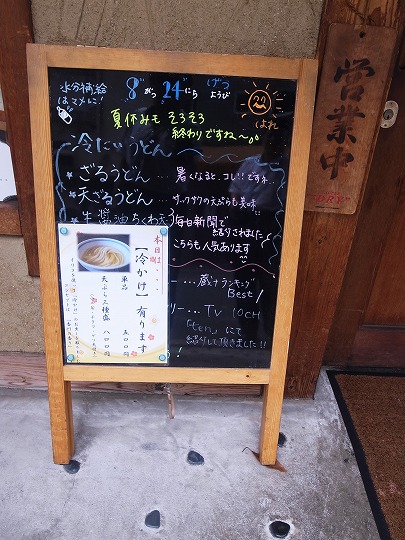 水分補給
はマメに!
8がつ 24にち げつようび
22
はれ
夏休みも そろそろ
終わりですね〜。
冷たいうどん
★ ざるうどん … 暑くなると、コレ!!ですネ…
★ 天ざるうどん … サクサクの天ぷらも美味
★ 生醤油ちくわ天
毎日新聞で
紹介されました
こちらも人気あります
ランキング
Best!
リー … TV 10CH
「ten」にて
紹介して頂きました!!
本日は・・・
【冷かけ】有ります
単品 五〇〇円
天ぷら三種盛 八〇〇円
営業中